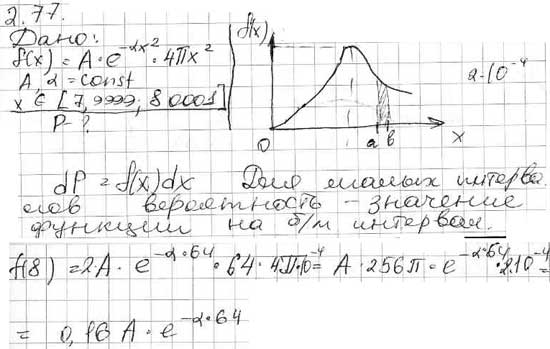 2.77.
Дано:
f(x) = A·e^{-αx²}·4πx²
A, α = const
x ∈ [7,9999, 8,0001]
P - ?
f(x)
2·10⁻⁴
0 a b x
dP = f(x)dx Для малых интерва
лов вероятность – значение
функции на б/м интервал.
f(8) = 2A·e^{-α·64}·64·4π·10⁻⁴ = A·256π·e^{-α·64}·2·10⁻⁴ =
= 0,16 A·e^{-α·64}